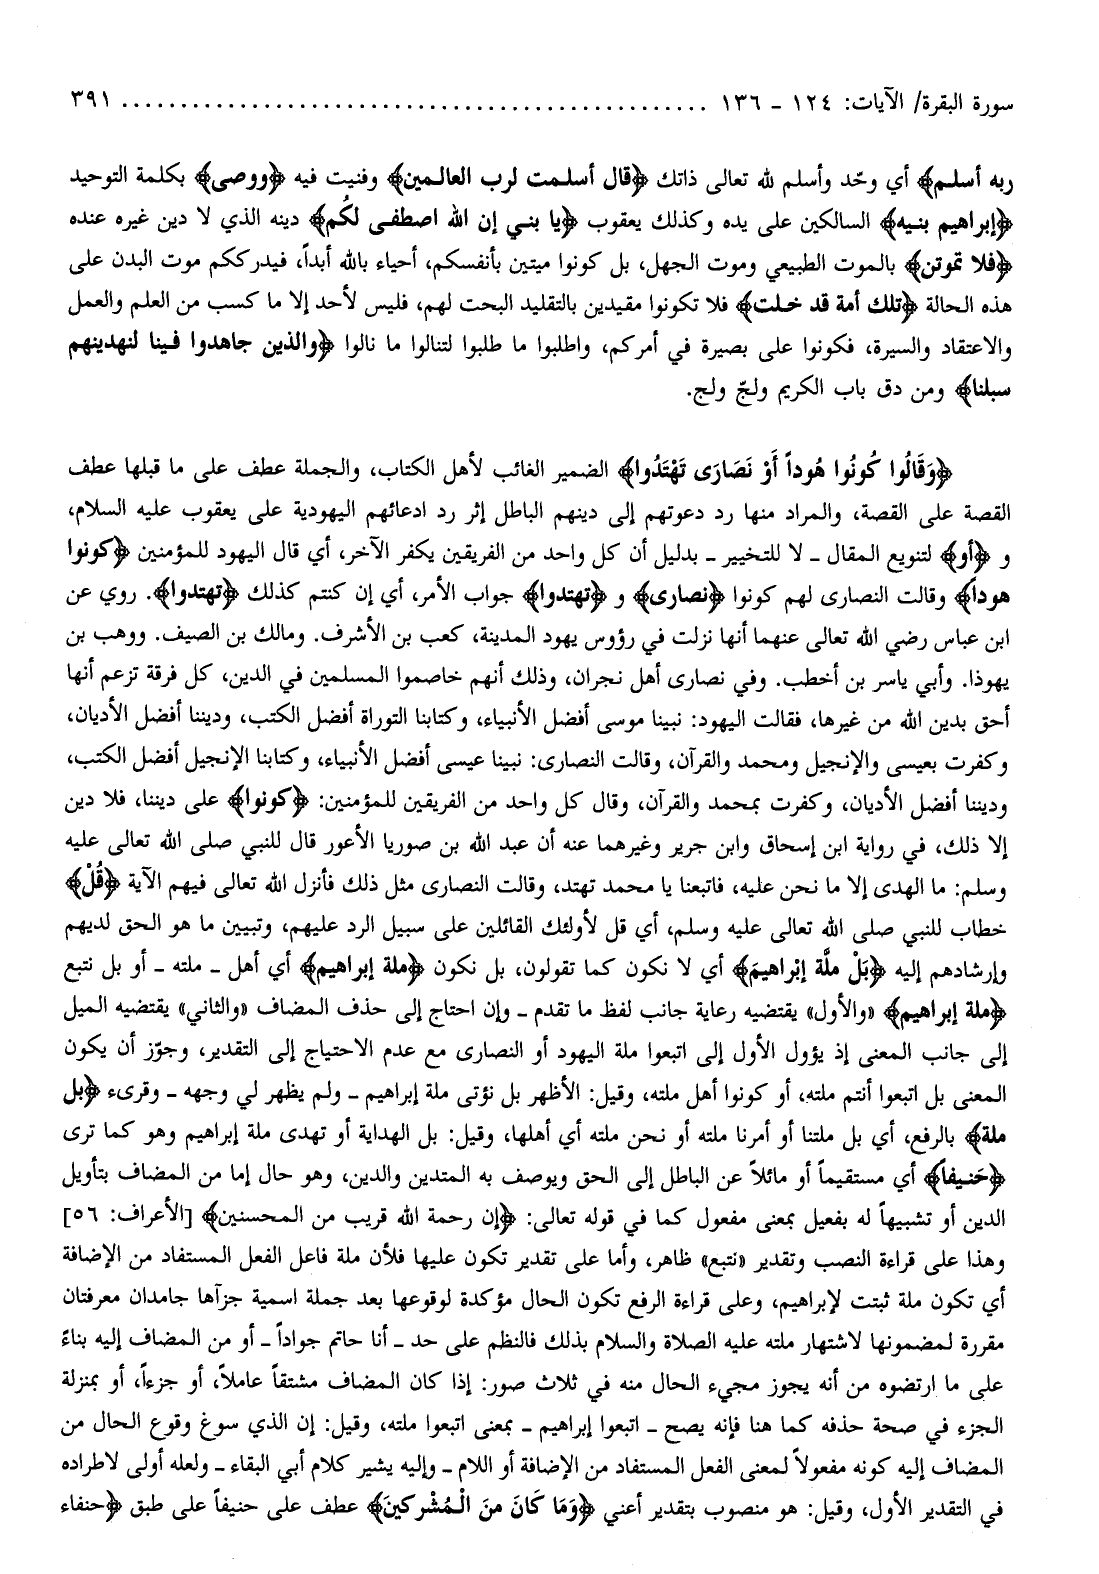 سورة البقرة/ الآيات: ١٢٤ ـ ١٣٦ ................................................ ٣٩١
ربه أسلم﴾ أي وحّد وأسلم لله تعالى ذاتك ﴿قال أسلمت لرب العالمين﴾ وفنيت فيه ﴿ووصى﴾ بكلمة التوحيد
﴿إبراهيم بنيه﴾ السالكين على يده وكذلك يعقوب ﴿يا بني إن الله اصطفى لكُم﴾ دينه الذي لا دين غيره عنده
﴿فلا تموتن﴾ بالموت الطبيعي وموت الجهل، بل كونوا ميتين بأنفسكم، أحياء بالله أبداً، فيدرككم موت البدن على
هذه الحالة ﴿تلك أمة قد خلت﴾ فلا تكونوا مقيدين بالتقليد البحت لهم، فليس لأحد إلا ما كسب من العلم والعمل
والاعتقاد والسيرة، فكونوا على بصيرة في أمركم، واطلبوا ما طلبوا لتنالوا ما نالوا ﴿والذين جاهدوا فينا لنهدينهم
سبلنا﴾ ومن دق باب الكريم ولجّ ولج.
﴿وَقَالُوا كُونُوا هُوداً أَوْ نَصَارَى تَهْتَدُوا﴾ الضمير الغائب لأهل الكتاب، والجملة عطف على ما قبلها عطف
القصة على القصة، والمراد منها رد دعوتهم إلى دينهم الباطل إثر رد ادعائهم اليهودية على يعقوب عليه السلام،
و ﴿أو﴾ لتنويع المقال ـ لا للتخيير ـ بدليل أن كل واحد من الفريقين يكفر الآخر، أي قال اليهود للمؤمنين ﴿كونوا
هوداً﴾ وقالت النصارى لهم كونوا ﴿نصارى﴾ و ﴿تهتدوا﴾ جواب الأمر، أي إن كنتم كذلك ﴿تهتدوا﴾. روي عن
ابن عباس رضي الله تعالى عنهما أنها نزلت في رؤوس يهود المدينة، كعب بن الأشرف. ومالك بن الصيف. ووهب بن
يهوذا. وأبي ياسر بن أخطب. وفي نصارى أهل نجران، وذلك أنهم خاصموا المسلمين في الدين، كل فرقة تزعم أنها
أحق بدين الله من غيرها، فقالت اليهود: نبينا موسى أفضل الأنبياء، وكتابنا التوراة أفضل الكتب، وديننا أفضل الأديان،
وكفرت بعيسى والإنجيل ومحمد والقرآن، وقالت النصارى: نبينا عيسى أفضل الأنبياء، وكتابنا الإنجيل أفضل الكتب،
وديننا أفضل الأديان، وكفرت بمحمد والقرآن، وقال كل واحد من الفريقين للمؤمنين: ﴿كونوا﴾ على ديننا، فلا دين
إلا ذلك، في رواية ابن إسحاق وابن جرير وغيرهما عنه أن عبد الله بن صوريا الأعور قال للنبي صلى الله تعالى عليه
وسلم: ما الهدى إلا ما نحن عليه، فاتبعنا يا محمد تهتد، وقالت النصارى مثل ذلك فأنزل الله تعالى فيهم الآية ﴿قُلْ﴾
خطاب للنبي صلى الله تعالى عليه وسلم، أي قل لأولئك القائلين على سبيل الرد عليهم، وتبيين ما هو الحق لديهم
وإرشادهم إليه ﴿بَلْ ملَّة إبْراهيمَ﴾ أي لا نكون كما تقولون، بل نكون ﴿ملة إبراهيم﴾ أي أهل ـ ملته ـ أو بل نتبع
﴿ملة إبراهيم﴾ «والأول» يقتضيه رعاية جانب لفظ ما تقدم ـ وإن احتاج إلى حذف المضاف «والثاني» يقتضيه الميل
إلى جانب المعنى إذ يؤول الأول إلى اتبعوا ملة اليهود أو النصارى مع عدم الاحتياج إلى التقدير، وجوّز أن يكون
المعنى بل اتبعوا أنتم ملته، أو كونوا أهل ملته، وقيل: الأظهر بل نؤتى ملة إبراهيم ـ ولم يظهر لي وجهه ـ وقرىء ﴿بل
ملة﴾ بالرفع، أي بل ملتنا أو أمرنا ملته أو نحن ملته أي أهلها، وقيل: بل الهداية أو تهدى ملة إبراهيم وهو كما ترى
﴿حَنيفاً﴾ أي مستقيماً أو مائلاً عن الباطل إلى الحق ويوصف به المتدين والدين، وهو حال إما من المضاف بتأويل
الدين أو تشبيهاً له بفعيل بمعنى مفعول كما في قوله تعالى: ﴿إن رحمة الله قريب من المحسنين﴾ [الأعراف: ٥٦]
وهذا على قراءة النصب وتقدير «نتبع» ظاهر، وأما على تقدير تكون عليها فلأن ملة فاعل الفعل المستفاد من الإضافة
أي تكون ملة ثبتت لإبراهيم، وعلى قراءة الرفع تكون الحال مؤكدة لوقوعها بعد جملة اسمية جزآها جامدان معرفتان
مقررة لمضمونها لاشتهار ملته عليه الصلاة والسلام بذلك فالنظم على حد ـ أنا حاتم جواداً ـ أو من المضاف إليه بناءً
على ما ارتضوه من أنه يجوز مجيء الحال منه في ثلاث صور: إذا كان المضاف مشتقاً عاملاً، أو جزءاً، أو بمنزلة
الجزء في صحة حذفه كما هنا فإنه يصح ـ اتبعوا إبراهيم ـ بمعنى اتبعوا ملته، وقيل: إن الذي سوغ وقوع الحال من
المضاف إليه كونه مفعولاً لمعنى الفعل المستفاد من الإضافة أو اللام ـ وإليه يشير كلام أبي البقاء ـ ولعله أولى لاطراده
في التقدير الأول، وقيل: هو منصوب بتقدير أعني ﴿وَمَا كَانَ منَ الْمُشْركينَ﴾ عطف على حنيفاً على طبق ﴿حنفاء